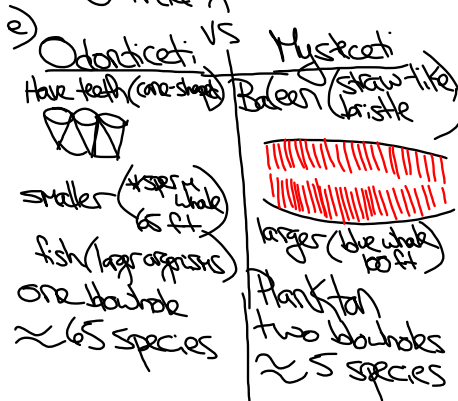 e)
Odondiceti vs Mysteceti
Have teeth (cone-shaped)
smaller (*sperm
whale
65 ft.)
fish/larger organisms)
one blowhole
≈ 65 species
Baleen (straw-like
bristle)
larger (blue whale
100 ft)
Plankton
two blowholes
≈ 5 species